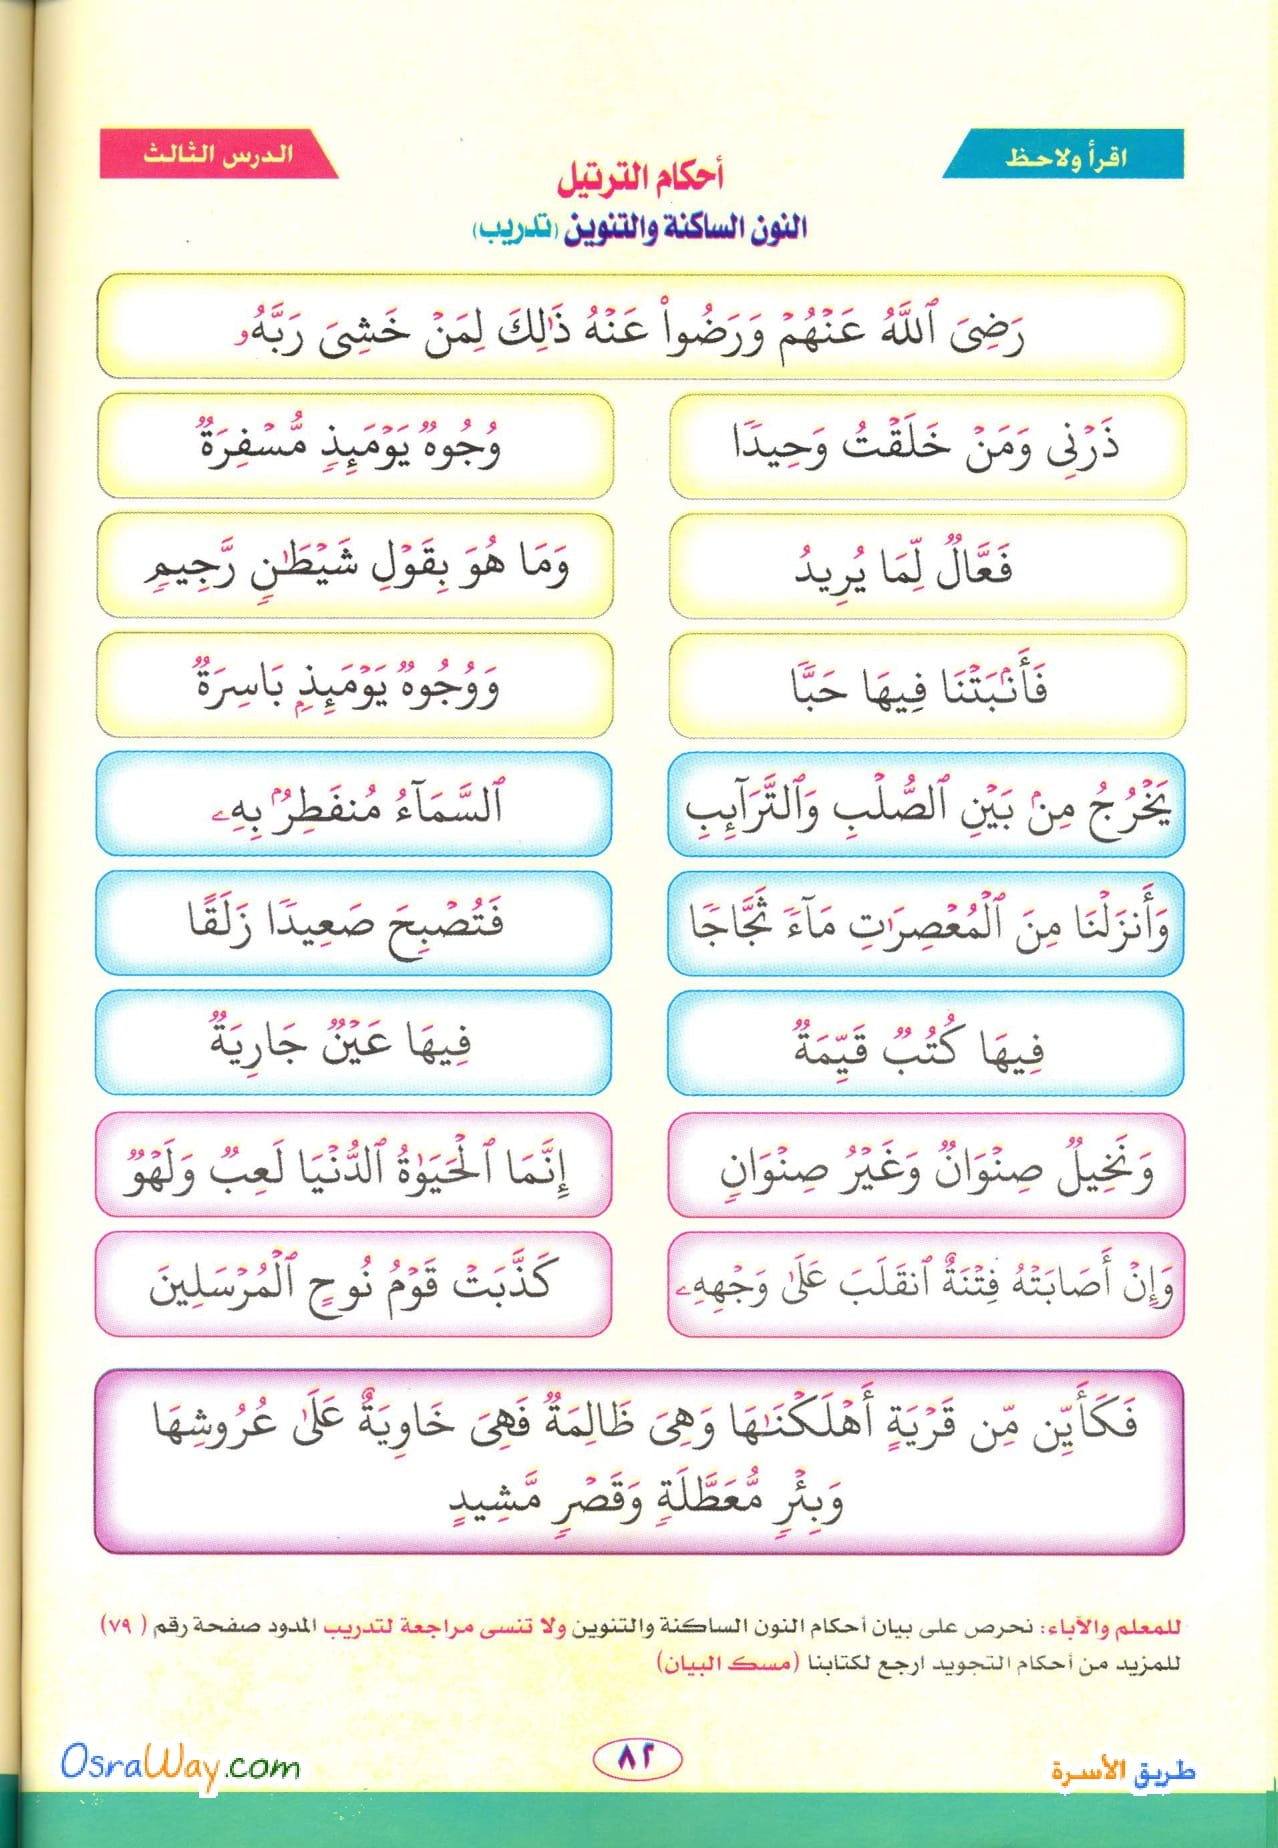 اقرأ ولاحظ
الدرس الثالث
أحكام الترتيل
النون الساكنة والتنوين (تدريب)
رَضِىَ ٱللَّهُ عَنْهُمْ وَرَضُوا۟ عَنْهُ ذَٰلِكَ لِمَنْ خَشِىَ رَبَّهُۥ
ذَرْنِى وَمَنْ خَلَقْتُ وَحِيدًا
وُجُوهٌ يَوْمَئِذٍ مُّسْفِرَةٌ
فَعَّالٌ لِّمَا يُرِيدُ
وَمَا هُوَ بِقَوْلِ شَيْطَٰنٍ رَّجِيمٍ
فَأَنۢبَتْنَا فِيهَا حَبًّا
وَوُجُوهٌ يَوْمَئِذٍۭ بَاسِرَةٌ
يَخْرُجُ مِنۢ بَيْنِ ٱلصُّلْبِ وَٱلتَّرَآئِبِ
ٱلسَّمَآءُ مُنفَطِرٌۢ بِهِۦ
وَأَنزَلْنَا مِنَ ٱلْمُعْصِرَٰتِ مَآءً ثَجَّاجًا
فَتُصْبِحَ صَعِيدًا زَلَقًا
فِيهَا كُتُبٌ قَيِّمَةٌ
فِيهَا عَيْنٌ جَارِيَةٌ
وَنَخِيلٌ صِنْوَانٌ وَغَيْرُ صِنْوَانٍ
إِنَّمَا ٱلْحَيَوٰةُ ٱلدُّنْيَا لَعِبٌ وَلَهْوٌ
وَإِنْ أَصَابَتْهُ فِتْنَةٌ ٱنقَلَبَ عَلَىٰ وَجْهِهِۦ
كَذَّبَتْ قَوْمُ نُوحٍ ٱلْمُرْسَلِينَ
فَكَأَيِّن مِّن قَرْيَةٍ أَهْلَكْنَٰهَا وَهِىَ ظَالِمَةٌ فَهِىَ خَاوِيَةٌ عَلَىٰ عُرُوشِهَا
وَبِئْرٍ مُّعَطَّلَةٍ وَقَصْرٍ مَّشِيدٍ
للمعلم والآباء: نحرص على بيان أحكام النون الساكنة والتنوين ولا تنسى مراجعة لتدريب المدود صفحة رقم (٧٩)
للمزيد من أحكام التجويد ارجع لكتابنا (مسك البيان)
٨٢
طريق الأسرة
OsraWay.com